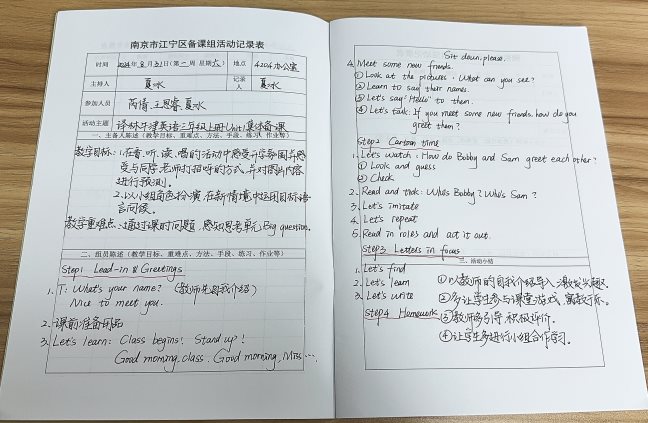 南京市江宁区备课组活动记录表
时间 2024年8月31日(第一周 星期六) 地点 4204办公室
主持人 夏冰 记录人 夏冰
参加人员 芮倩 王思睿 夏冰
活动主题 译林牛津英语三年级上册Unit1集体备课
一、主备人陈述(教学目标、重难点、方法、手段、练习、作业等)
教学目标: 1.在看、听、读、唱的活动中感受开学氛围并感
受与同学、老师打招呼的方式,并对图片内容
进行预测。
2.以小组角色扮演,在新情境中运用目标语
言问候。
教学重难点:通过课时问题,感知思考单元Big question.
二、组员陈述(教学目标、重难点、方法、手段、练习、作业等)
Step1 Lead-in & Greetings
1. T: What's your name? (教师先自我介绍)
Nice to meet you.
2. 课前准备用品
3. Let's learn: Class begins! Stand up!
Good morning, class. Good morning, Miss ….
Sit down, please.
4. Meet some new friends.
① Look at the pictures. What can you see?
② Learn to say their names.
③ Let's say "Hello" to them.
④ Let's talk: If you meet some new friends, how do you
greet them?
Step2 Cartoon time
1. Let's watch: How do Bobby and Sam greet each other?
① Look and guess
② Check
2. Read and tick: Who's Bobby? Who's Sam?
3. Let's imitate
4. Let's repeat
5. Read in roles and act it out.
Step3 Letters in focus
三、活动小结
1. Let's find
2. Let's learn
3. Let's write
Step4 Homework
①以教师的自我介绍导入,激发兴趣.
②多让学生参与课堂游戏,寓教于乐.
③教师多引导,积极评价.
④让学生多进行小组合作学习.